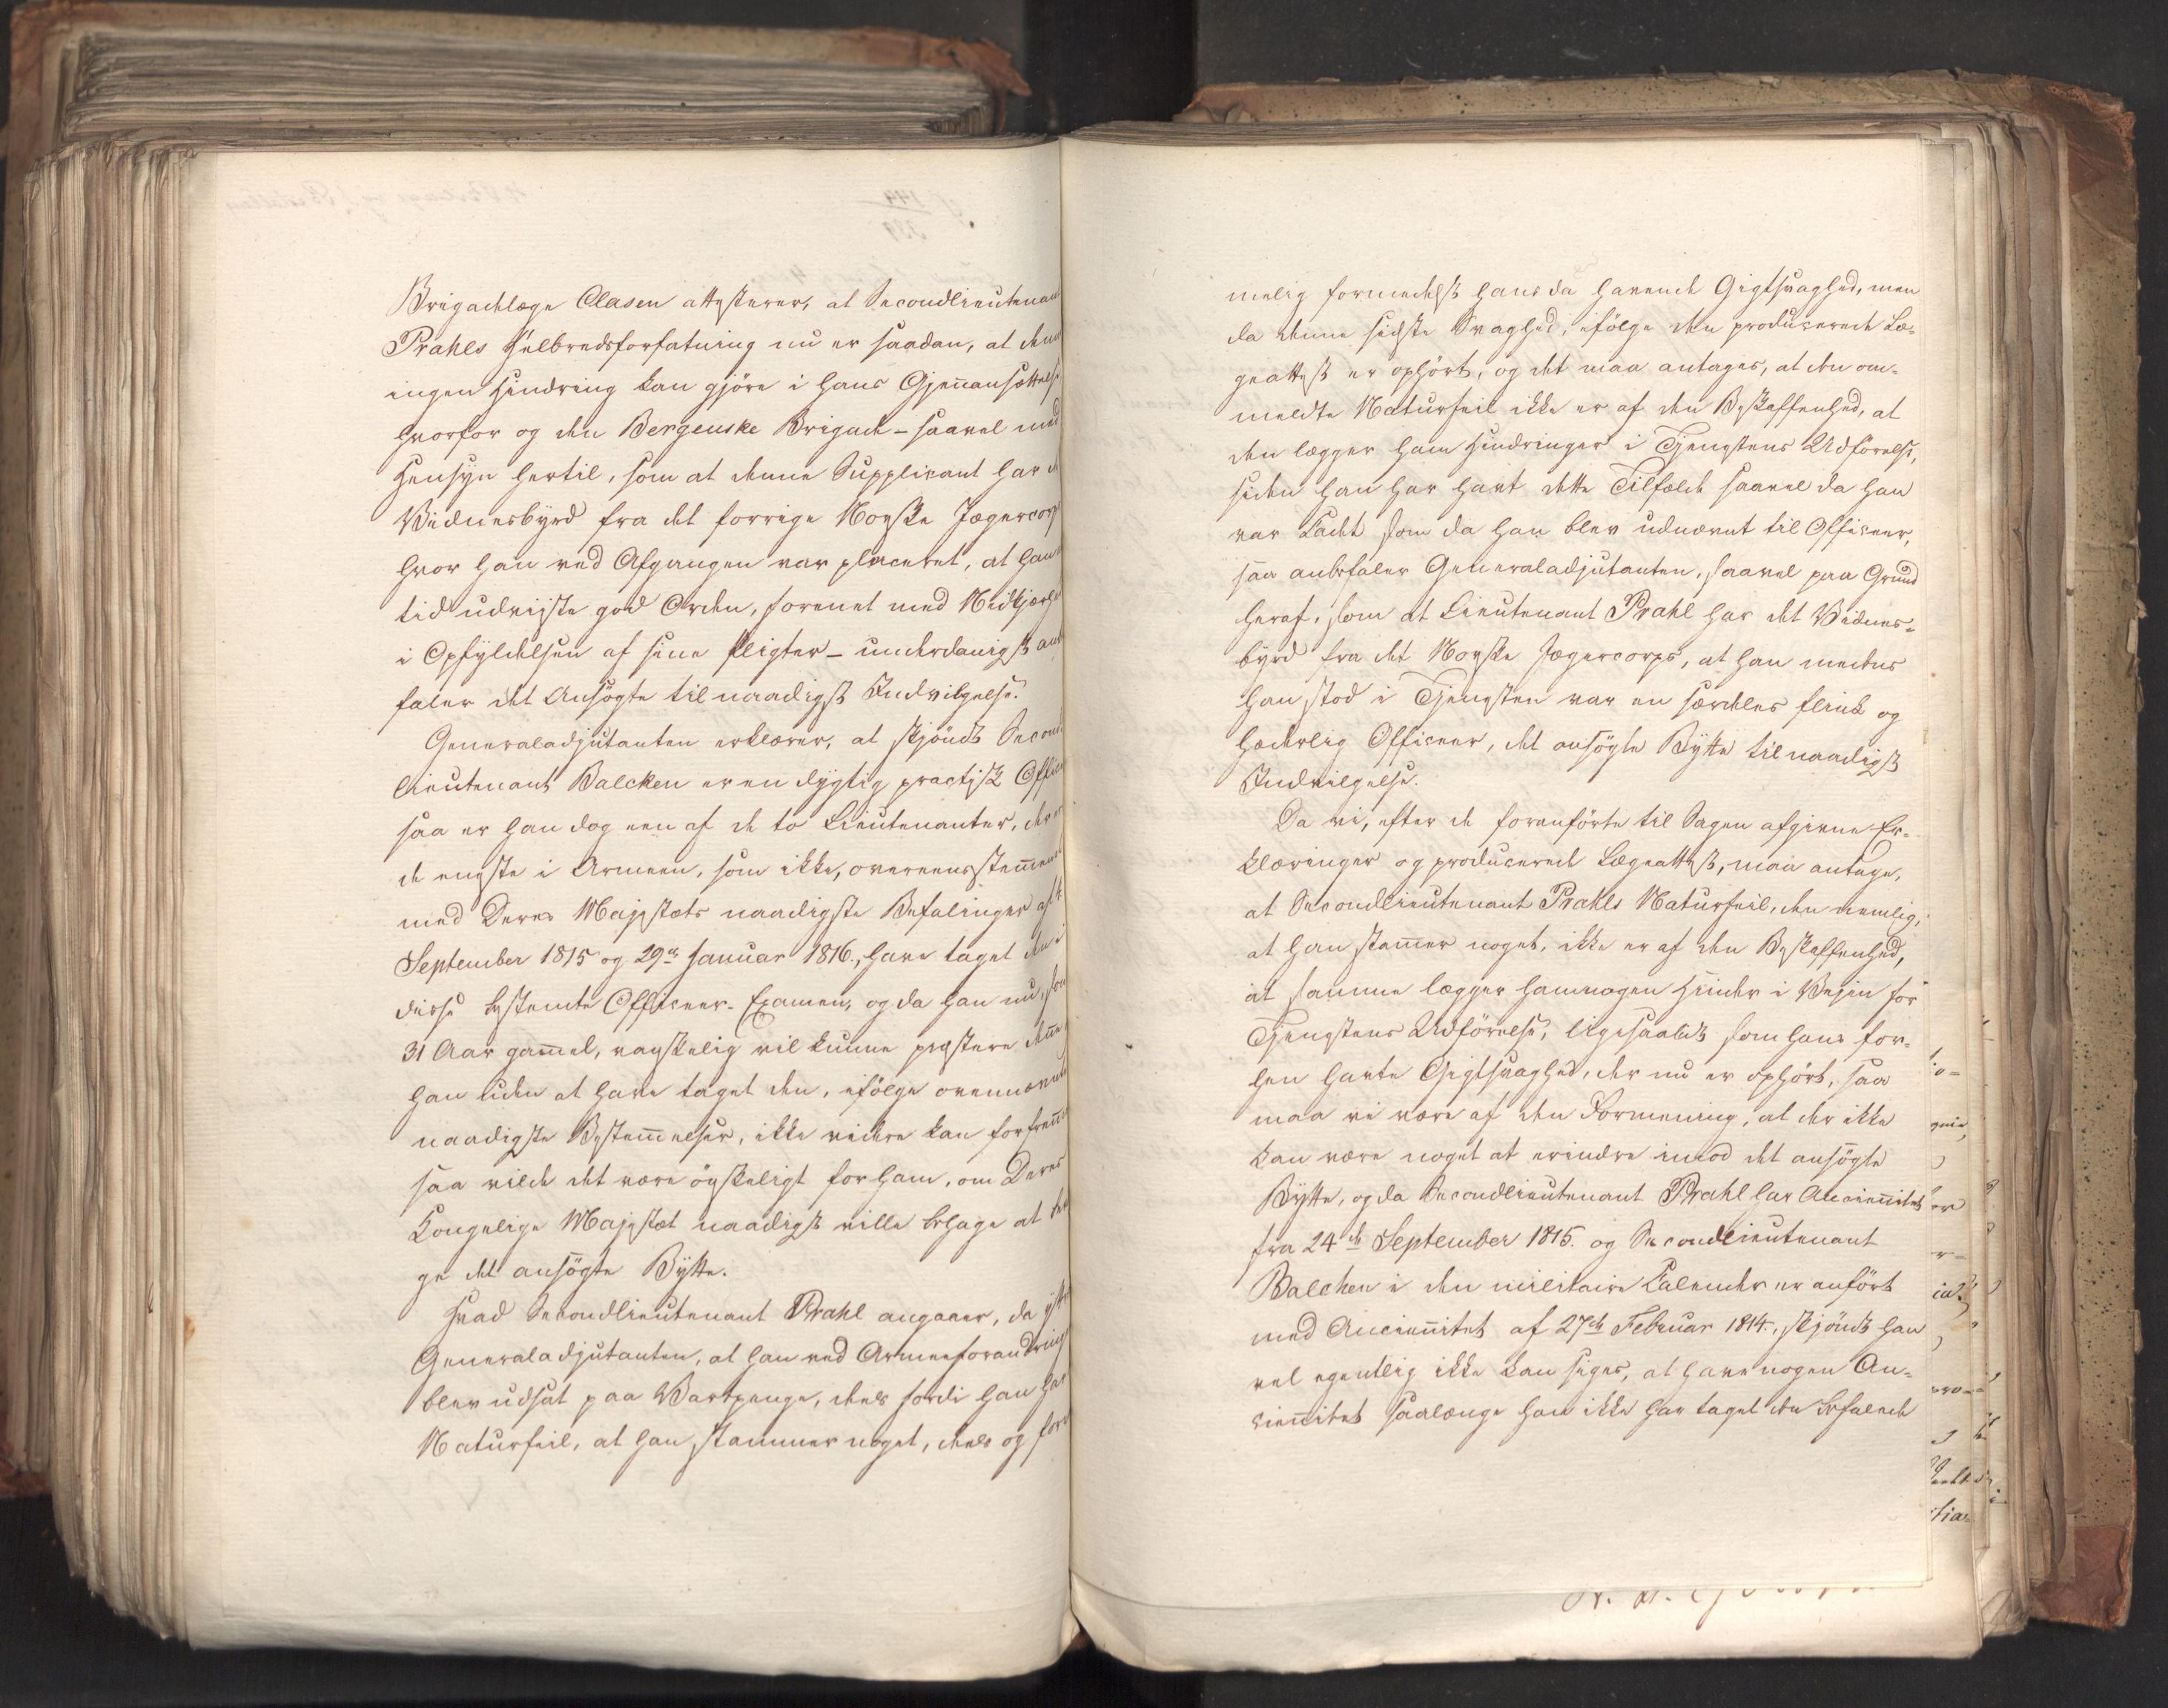 Brigadelæge Clasen attesterer, at Secondlieutenant
Prahls Helbredsforfatning nu er saadan, at denne
ingen Hindring kan gjöre i hans Gjenansættelse
hvorfor og den Bergenske Brigade – saavel med
Hensyn hertil, som at denne Supplicant har
Vidnesbyrd fra det forrige Norske Jægercorps
hvor han ved Afgangen var placeret, at han
tid udviste god Orden, forenet med Nidkjærhed
i Opfyldelsen af sine Pligter – underdanigst an-
faler det Ansögte til naadigst Indvilgelse.
Generaladjutanten erklærer, at skjöndt Second-
lieutenant Balchen er en dygtig practisk Officer
saa er han dog een af de to Lieutenanter, der er
de eneste i Armeen, som ikke, overeensstemmende
med Deres Majestæts naadigste Befalinger af
September 1815 og 29de Januar 1816, have taget den i
disse bestemte Officeer-Examen, og da han nu, som
31 Aar gammel, vanskelig vil kunne præstere denne,
han uden at have taget den, ifölge ovennævnte
naadigste Bestemmelser, ikke videre kan forfremmes
saa vilde det være önskeligt for ham, om Deres
Kongelige Majestæt naadigst ville behage at bevil-
ge det ansögte Bytte.
Hvad Secondlieutenant Prahl angaaer, da yttrer
Generaladjutanten, at han ved Armeeforandringen
blev udsat paa Vartpenge, deels fordi han har
Naturfeil, at han stammer noget, deels og for-
melig formedelst hans da havende Gigtsvaghed, men
da denne sidste Svaghed, ifölge den producerede Læ-
geattest er ophört, og det maa antages, at den om-
meldte Naturfeil ikke er af den Beskaffenhed, at
den lægger ham Hindringer i Tjenestens Udförelse,
siden han har havt dette Tilfælde saavel da han
var Cadet som da han blev udnævnt til Officeer,
saa anbefaler Generaladjutanten, saavel paa Grund
heraf, som at Lieutenant Prahl har det Vidnes-
byrd fra det Norske Jægercorps, at han medens
han stod i Tjenesten var en særdeles flink og
hæderlig Officeer, det ansögte Bytte til naadigst
Indvilgelse.
Da vi, efter de foranförte til Sagen afgivne Er-
klæringer og producerede Lægeattest, maa antage,
at Secondlieutenant Prahls Naturfeil, den nemlig,
at han stammer noget, ikke er af den Beskaffenhed,
at samme lægger ham nogen Hinder i Veien for
Tjenestens Udförelse, ligesaalidt som hans for-
hen havte Gigtsvaghed, der nu er ophört, saa
maa vi være af den Formening, at der ikke
kan være noget at erindre imod det ansögte
Bytte, og da Secondlieutenant Prahl har Anciennitet
fra 24de September 1815 og Secondlieutenant
Balchen i den militaire Calender er anfört
med Anciennitet af 27de Februar 1814, skjöndt han
vel egentlig ikke kan siges, at have nogen An-
ciennitet saalænge han ikke har taget den befalede